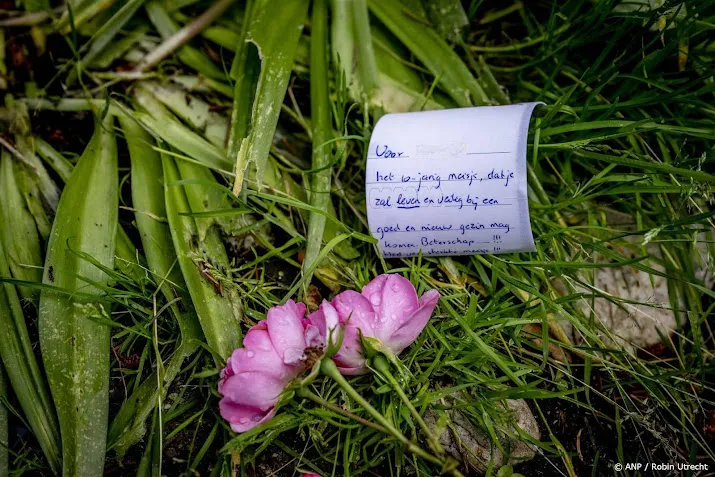 Voor
het 10-jarig meisje, dat je
zal leven en veilig bij een
goed en nieuw gezin mag
komen Beterschap !!!
© ANP / Robin Utrecht